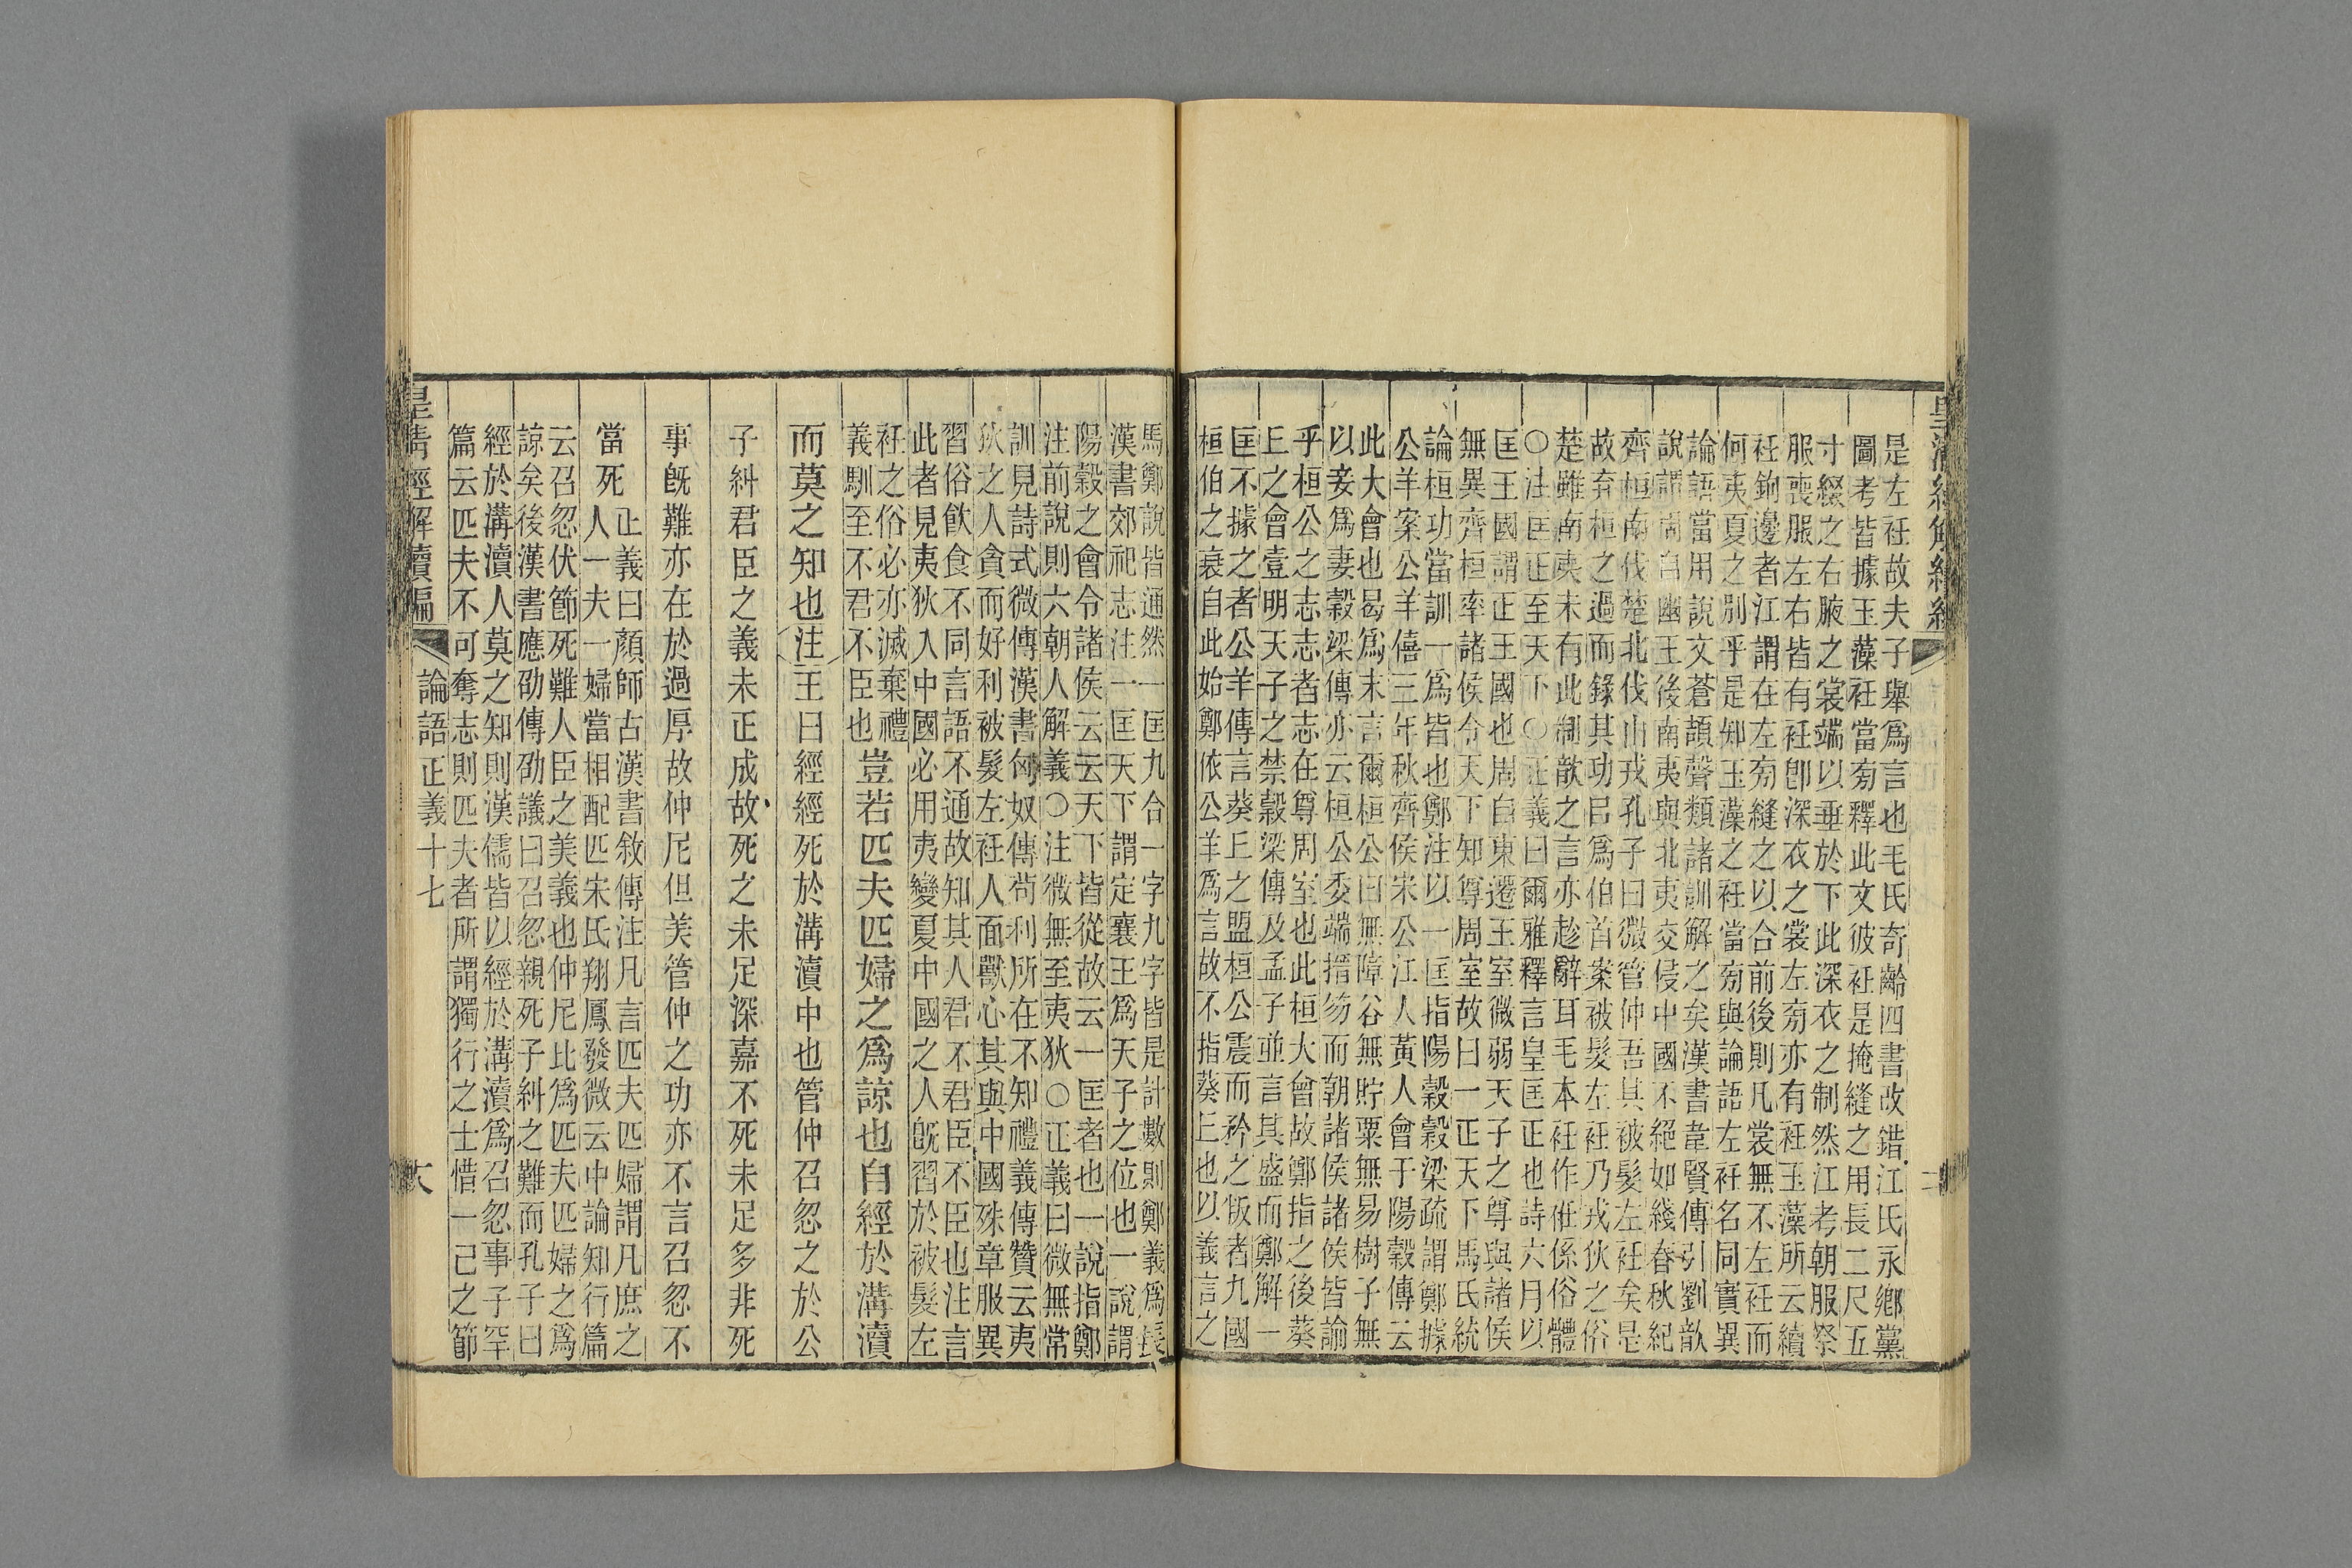 是左衽故夫子舉爲言也毛氏奇齡四書改錯江氏永鄉黨
圖考皆據玉藻衽當旁釋此文彼衽是掩縫之用長二尺五
寸綴之右腋之裳端以垂於下此深衣之制然江考朝服祭
服喪服左右皆有衽卽深衣之裳左旁亦有衽玉藻所云續
衽鉤邊者江謂在左旁縫之以合前後則凡裳無不左衽而
何夷夏之別乎是知玉藻之衽當旁與論語左衽名同實異
論語當用說文蒼頡聲類諸訓解之矣漢書韋賢傳引劉歆
說謂周自幽王後南夷與北夷交侵中國不絕如綫春秋紀
齊桓南伐楚北伐山戎孔子曰微管仲吾其被髮左衽矣是
故弃桓之過而錄其功㠯爲伯首案被髮左衽乃戎狄之俗
楚雖南夷未有此制歆之言亦趁辭耳毛本衽作袵係俗體
○注匡正至天下○正義曰爾雅釋言皇匡正也詩六月以
匡王國謂正王國也周自東遷王室微弱天子之尊與諸侯
無異齊桓率諸侯令天下知尊周室故曰一正天下馬氏統
論桓功當訓一爲皆也鄭注以一匡指陽穀穀梁疏謂鄭據
公羊案公羊僖三年秋齊侯宋公江人黃人會于陽穀傳云
此大會也曷爲末言爾桓公曰無障谷無貯粟無易樹子無
以妾爲妻穀梁傳亦云桓公委端搢笏而朝諸侯諸侯皆諭
乎桓公之志志者志在尊周室也此桓大會故鄭指之後葵
丘之會壹明天子之禁穀梁傳及孟子並言其盛而鄭解一
匡不據之者公羊傳言葵丘之盟桓公震而矜之叛者九國
桓伯之衰自此始鄭依公羊爲言故不指葵丘也以義言之
馬鄭說皆通然一匡九合一字九字皆是計數則鄭義爲長
漢書郊祀志注一匡天下謂定襄王爲天子之位也一說謂
陽穀之會令諸侯云云天下皆從故云一匡者也一說指鄭
注前說則六朝人解義○注微無至夷狄○正義曰微無常
訓見詩式微傳漢書匈奴傳苟利所在不知禮義傳贊云夷
狄之人貪而好利被髮左衽人面獸心其與中國殊章服異
習俗飲食不同言語不通故知其人君不君臣不臣也注言
此者見夷狄入中國必用夷變夏中國之人旣習於被髮左
衽之俗必亦滅棄禮
義馴至不君不臣也
豈若匹夫匹婦之爲諒也自經於溝瀆
而莫之知也注王曰經經死於溝瀆中也管仲召忽之於公
子糾君臣之義未正成故死之未足深嘉不死未足多非死
事旣難亦在於過厚故仲尼但美管仲之功亦不言召忽不
當死
正義曰顏師古漢書敘傳注凡言匹夫匹婦謂凡庶之
人一夫一婦當相配匹宋氏翔鳳發微云中論知行篇
云召忽伏節死難人臣之美義也仲尼比爲匹夫匹婦之爲
諒矣後漢書應劭傳劭議曰召忽親死子糾之難而孔子曰
經於溝瀆人莫之知則漢儒皆以經於溝瀆爲召忽事子罕
篇云匹夫不可奪志則匹夫者所謂獨行之士惜一己之節
皇清經解續編
論語正義十七